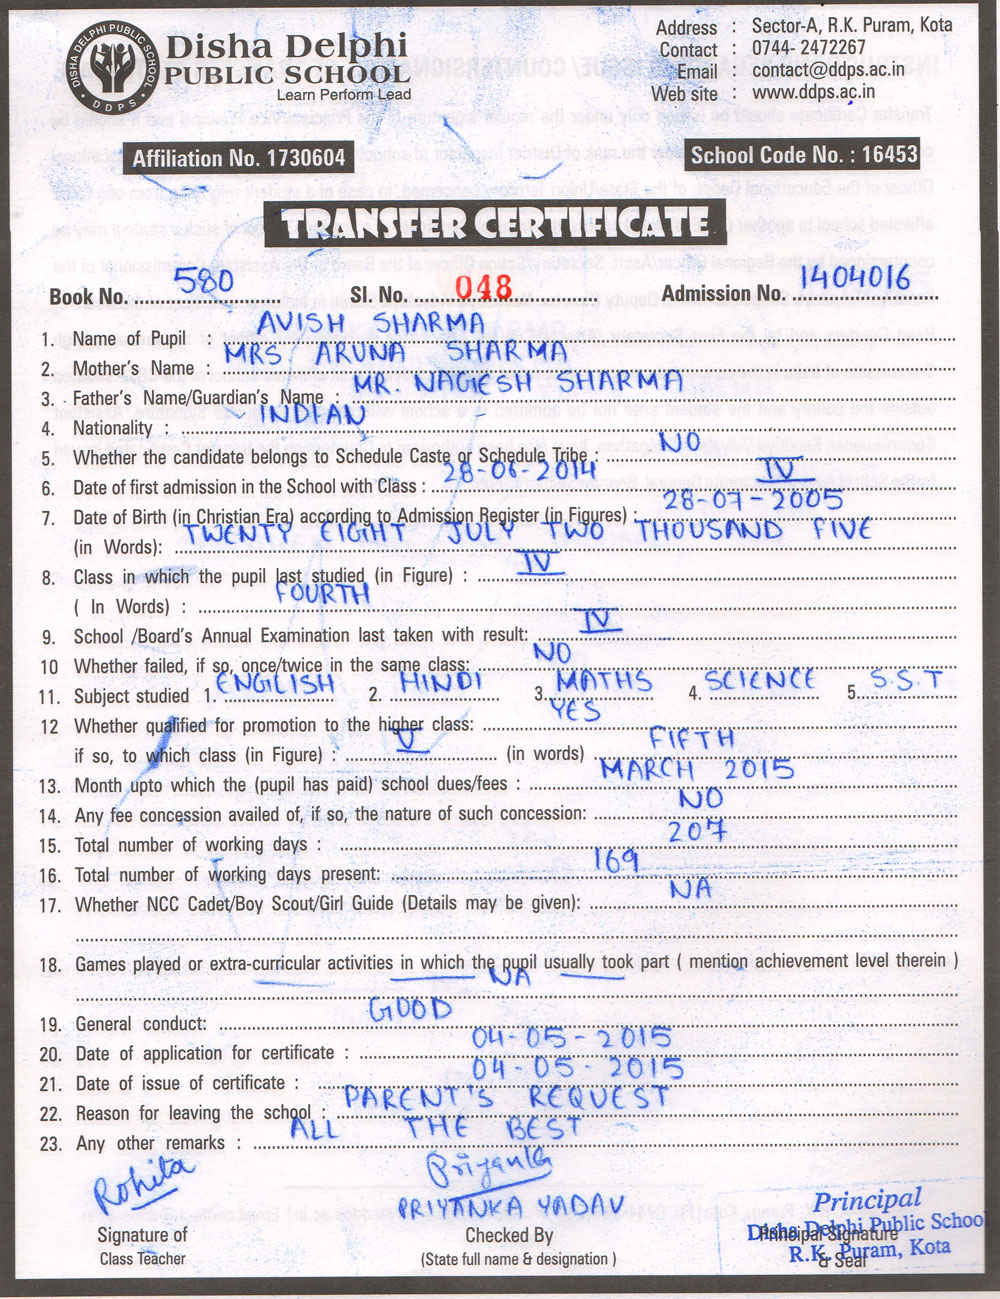 DISHA DELPHI PUBLIC SCHOOL
DDPS
Disha Delphi
PUBLIC SCHOOL
Learn Perform Lead
Address : Sector-A, R.K. Puram, Kota
Contact : 0744- 2472267
Email : contact@ddps.ac.in
Web site : www.ddps.ac.in
Affiliation No. 1730604
School Code No. : 16453
TRANSFER CERTIFICATE
Book No. 580 Sl. No. 048 Admission No. 1404016
1. Name of Pupil : AVISH SHARMA
2. Mother's Name : MRS ARUNA SHARMA
3. Father's Name/Guardian's Name : MR. NAGESH SHARMA
4. Nationality : INDIAN
5. Whether the candidate belongs to Schedule Caste of Schedule Tribe : NO
6. Date of first admission in the School with Class : 28-06-2014 IV
7. Date of Birth (in Christian Era) according to Admission Register (in Figures) : 28-07-2005
(in Words): TWENTY EIGHT JULY TWO THOUSAND FIVE
8. Class in which the pupil last studied (in Figure) : IV
( In Words) : FOURTH
9. School /Board's Annual Examination last taken with result: IV
10 Whether failed, if so, once/twice in the same class: NO
11. Subject studied 1. ENGLISH 2. HINDI 3. MATHS 4. SCIENCE 5. S.S.T
12 Whether qualified for promotion to the higher class: YES
if so, to which class (in Figure) : V (in words) FIFTH
13. Month upto which the (pupil has paid) school dues/fees : MARCH 2015
14. Any fee concession availed of, if so, the nature of such concession: NO
15. Total number of working days : 207
16. Total number of working days present: 169
17. Whether NCC Cadet/Boy Scout/Girl Guide (Details may be given): NA
18. Games played or extra-curricular activities in which the pupil usually took part ( mention achievement level therein )
NA
19. General conduct: GOOD
20. Date of application for certificate : 04-05-2015
21. Date of issue of certificate : 04-05-2015
22. Reason for leaving the school : PARENT'S REQUEST
23. Any other remarks : ALL THE BEST
Rohita
Priyanka
PRIYANKA YADAV
Signature of
Class Teacher
Checked By
(State full name & designation )
Principal
Disha Delphi Public School
R.K. Puram, Kota
Principal Signature
& Seal